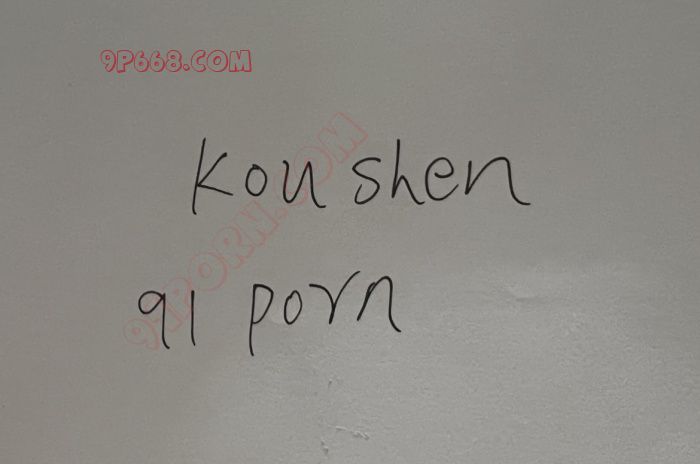 9P668.COM
Kou shen
91PORN.COM
91 porn